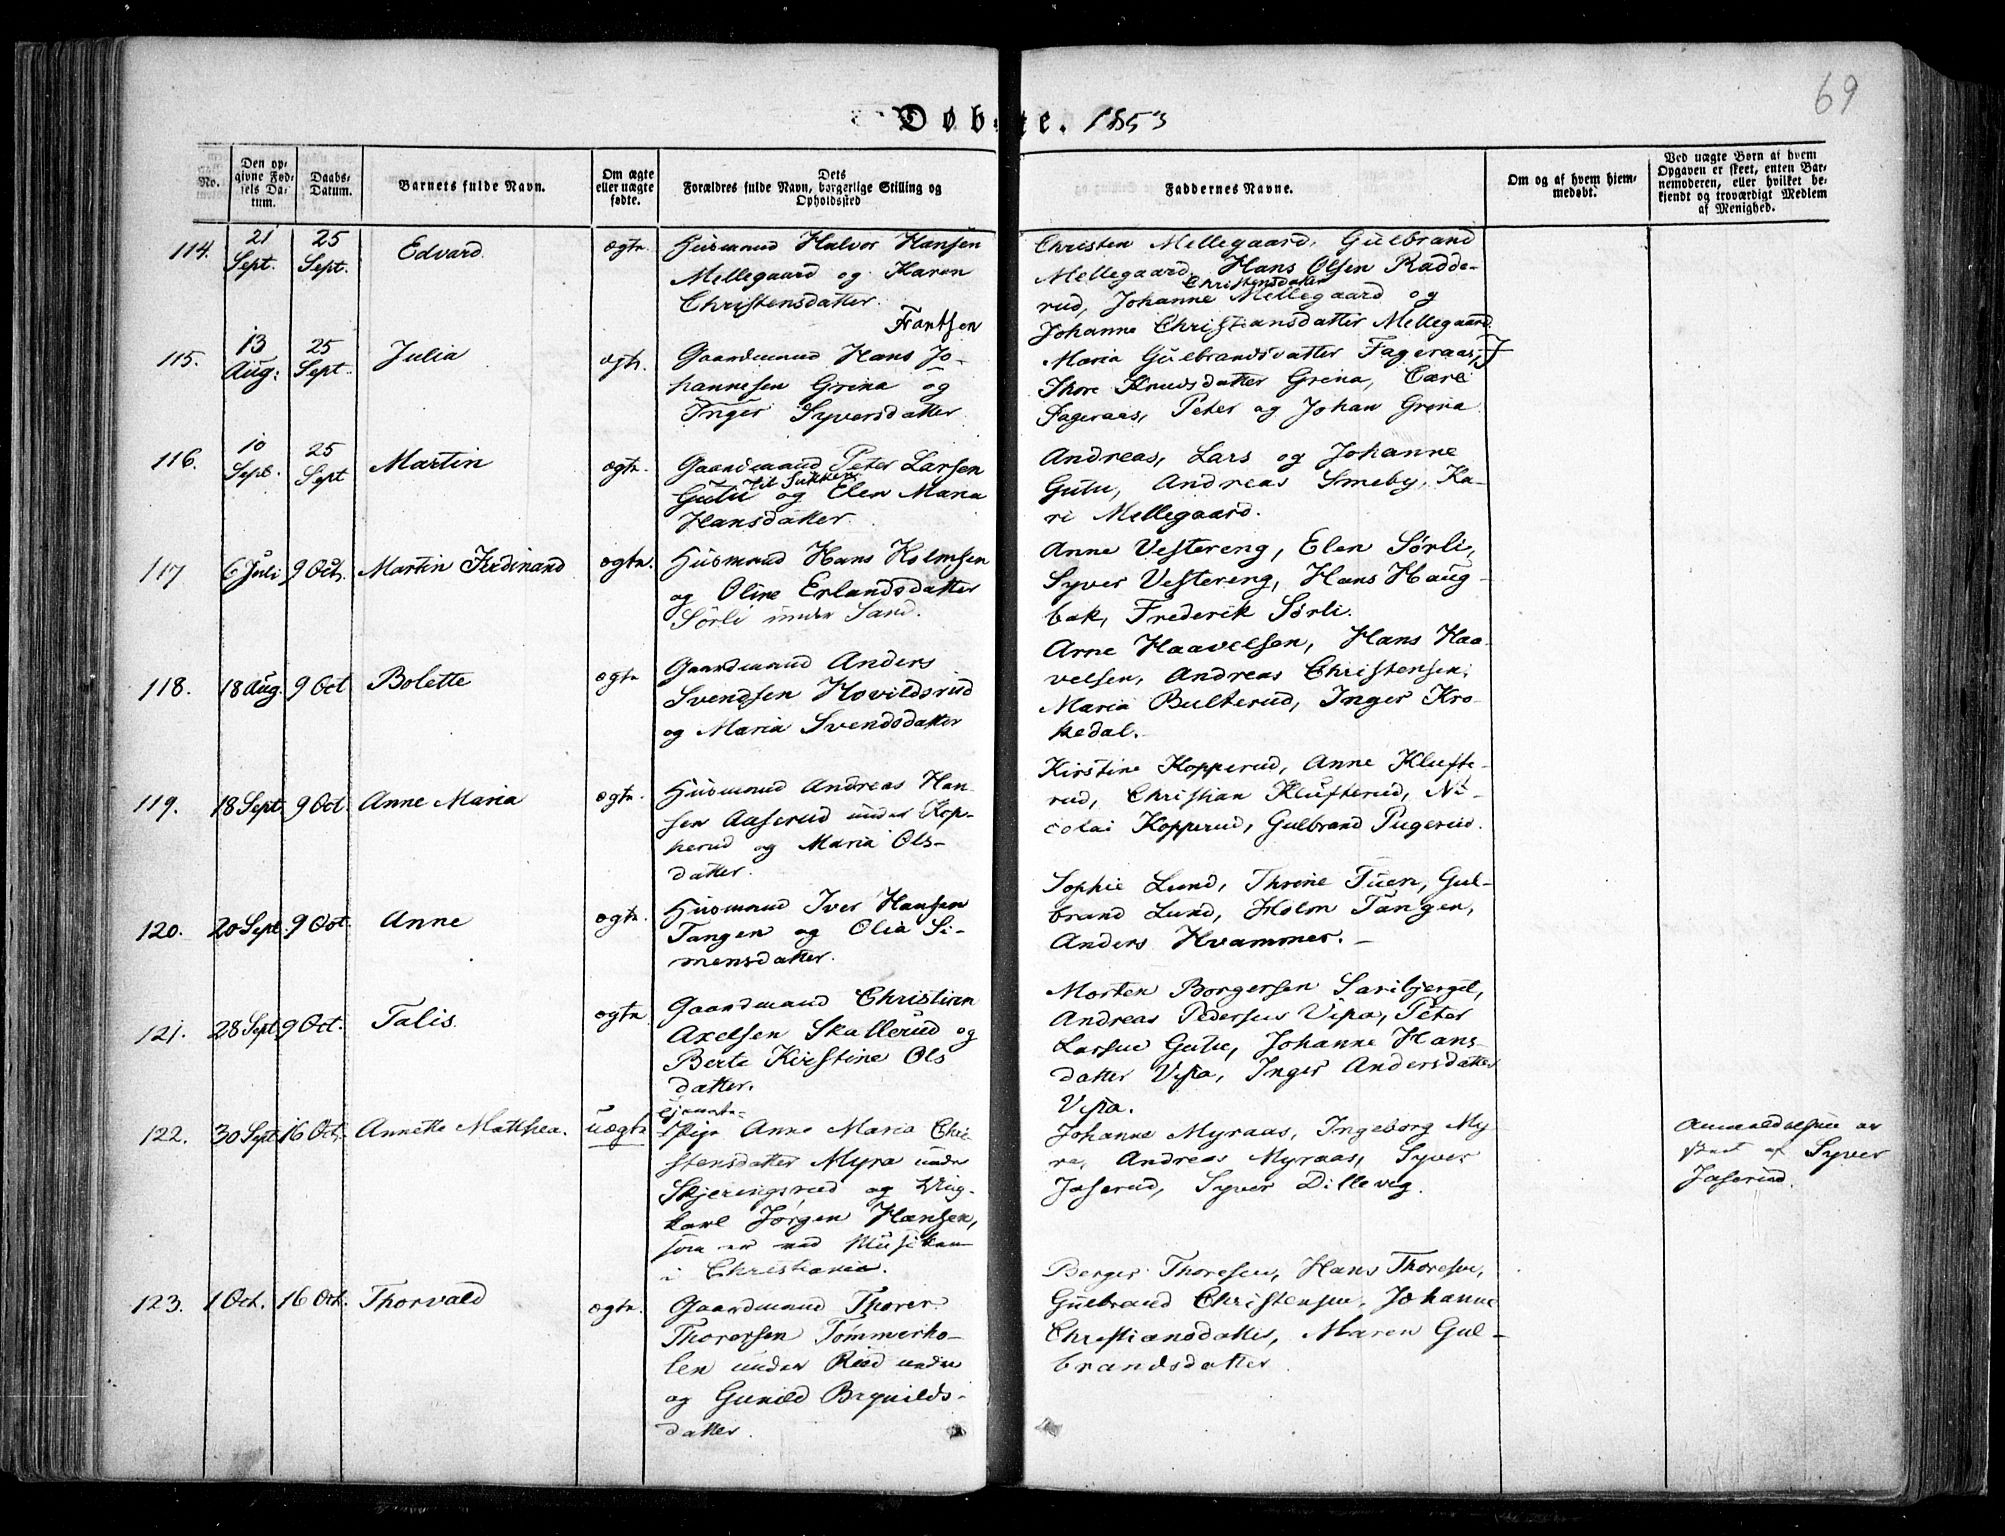 69
Døbte. 1853
No.
Den opgivne Fødsels Datum.
Daabs-Datum.
Barnets fulde Navn.
Om ægte eller uægte fødte.
Dets Forældres fulde Navn, borgerlige Stilling og Opholdssted
Faddernes Navne.
Om og af hvem hjemmedøbt.
Ved uægte Børn af hvem Opgaven er skeet, enten Barnemoderen, eller hvilket bekjendt og troværdigt Medlem af Menighed.
114. 21 Sept. 25 Sept. Edvard ægte.
Huusmand Halvor Hansen
Mellegaard og Karen
Christensdatter.
Christen Mellegaard, Gulbrand
Mellegaard, Hans Olsen Radde-
rud, Johanne Christensdatter Mellegaard og
Johanne Christiansdatter Mellegaard.
115. 13 Aug. 25 Sept. Julia ægte.
Frantsen
Gaardmand Hans Jo-
hannesen Grina og
Inger Syversdatter
Maria Gulbrandsdatter Fageraas,
Thore Knudsdatter Grina, Carl
Fageraas, Peter og Johan Grina
116. 10 Sept. 25 Sept Martin ægte.
Gaardmand Peter Larsen
Gutu og Elen Maria
Hansdatter.
Andreas, Lars og Johanne
Gutu, Andreas Smeby, Ka-
ri Mellegaard.
117 6 Juli 9 Oct. Martin Ferdinand ægte.
Huusmand Hans Holmsen
og Oline Erlandsdatter
Sørli under Sand.
Anne Vestereng, Elen Sørli,
Syver Vestereng, Hans Haug-
bak, Frederik Sørli.
118. 18 Aug. 9 Oct Bolette ægte
Gaardmand Anders
Svendsen Hovildsrud
og Maria Svendsdatter
Arne Haavelsen, Hans Haa-
velsen, Andreas Christensen,
Maria Bulterud, Inger Kro-
kedal.
119. 18 Sept. 9 Oct Anne Maria ægte.
Huusmand Andreas Han-
sen Aaserud under Kop-
perud og Maria Ols-
datter.
Kirstine Kopperud, Anne Klufte-
rud, Christian Klufterud, Ni-
colai Kopperud, Gulbrand Pugerud.
120. 20 Sept. 9 Oct. Anne ægte.
Huusmand Iver Hansen
Tangen og Olia Si-
mensdatter.
Sophie Lund, Thrine Tuen, Gul-
brand Lund, Holm Tangen,
Anders Hvammer.
121. 28 Sept. 9 Oct. Talis. ægte
Gaardmand Christian
Axelsen Skallerud og
Berte Kirstine Ols
datter.
Morten Borgersen Saribjergel,
Andreas Pedersen Visa, Peter
Larsen Gutu, Johanne Hans-
datter Visa, Inger Andersdatter
Visa.
122. 30 Sept. 16 Oct. Annette Matthea. uægte
Pige Anne Maria Chri-
stensdatter Myra under
Skjeringsrud og Ung-
karl Jørgen Hansen,
som er ved Musiken
i Christiania.
Johanne Myraas, Ingeborg My-
ra, Andreas Myraas, Syver
Jaserud, Syver Dillevig.
Anmeldelsen er
skeet af Syver
Jaserud.
123. 1 Oct. 16 Oct. Thorvald ægte.
Gaardmand Thorer
Thorersen Tømmerho-
len under Rud under
og Gunild Brynilds-
datter.
Berger Thoresen, Hans Thoresen,
Gulbrand Christensen, Johanne
Christiansdatter, Maren Gul-
brandsdatter.